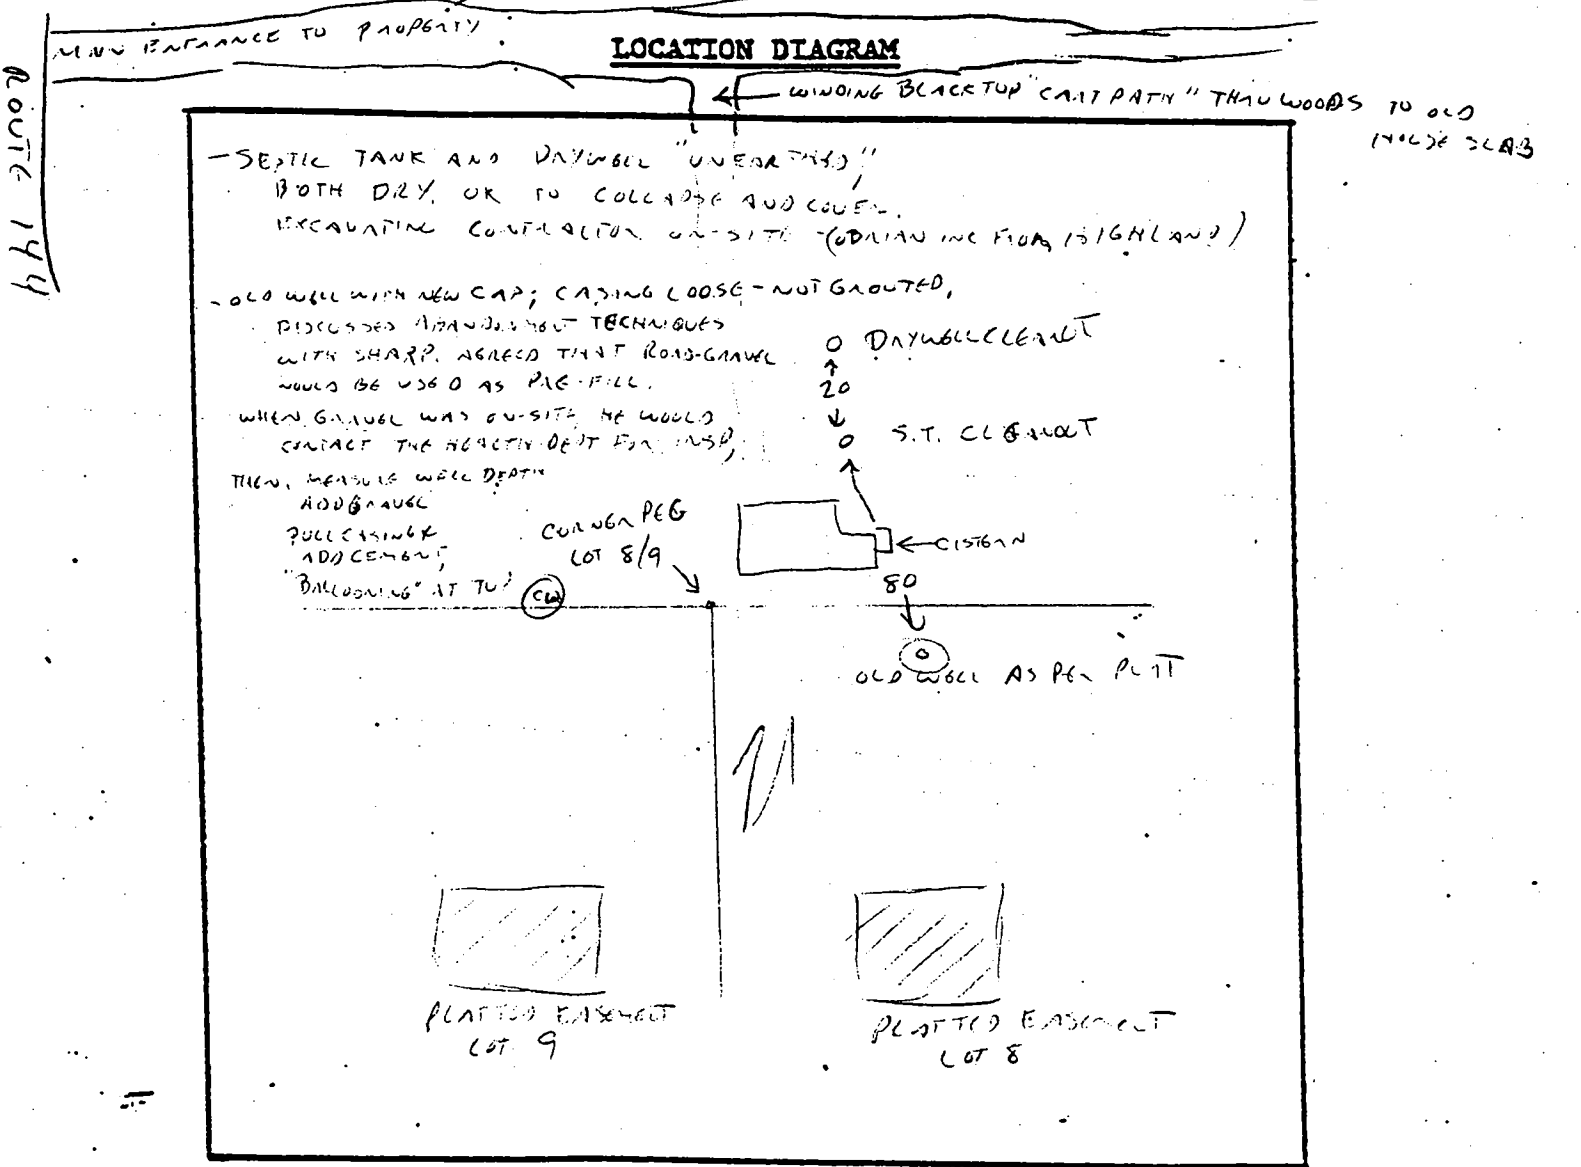 MAIN ENTRANCE TO PROPERTY
LOCATION DIAGRAM
ROUTE 144
WINDING BLACKTOP "CART PATH" THRU WOODS TO OLD
HOUSE SLAB
- SEPTIC TANK AND DRYWELL "UNEARTHED",
BOTH DRY. OK TO COLLAPSE AND COVER.
EXCAVATING CONTRACTOR ON-SITE - ( INC FROM HIGHLAND)
- OLD WELL WITH NEW CAP; CASING LOOSE - NOT GROUTED,
DISCUSSED ABANDONMENT TECHNIQUES
WITH SHARP. AGREED THAT ROAD-GRAVEL
WOULD BE USED AS PRE-FILL.
WHEN GRAVEL WAS ON-SITE, HE WOULD
CONTACT THE HEALTH DEPT FOR INSP,
THEN, MEASURE WELL DEPTH
ADD GRAVEL
PULL CASING &
ADD CEMENT,
"BALLOONING" AT TOP
DRYWELL CLEANOUT
20
S.T. CLEANOUT
CORNER PEG
LOT 8/9
CISTERN
80
OLD WELL AS PER PLAT
PLATTED EASEMENT
LOT 9
PLATTED EASEMENT
LOT 8